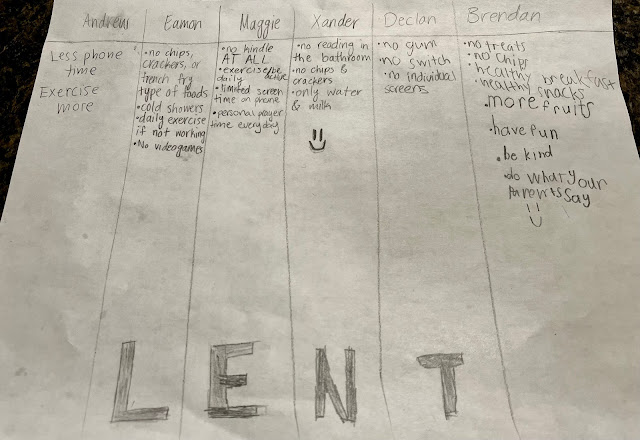 Andrew
Less phone
time
Exercise
more
Eamon
•no chips,
crackers, or
french fry
type of foods
•cold showers
•daily exercise
if not working
•No videogames
Maggie
•no kindle
AT ALL
•exercise/be
daily active
•limited screen
time on phone
•personal prayer
time everyday
Xander
•no reading in
the bathroom
•no chips &
crackers
•only water
& milk
Declan
•no gum
•no switch
•no individual
screens
Brendan
•no treats
•no chips
•healthy breakfast
•healthy snacks
•more fruits
•have fun
•be kind
•do what your
parents say
LENT